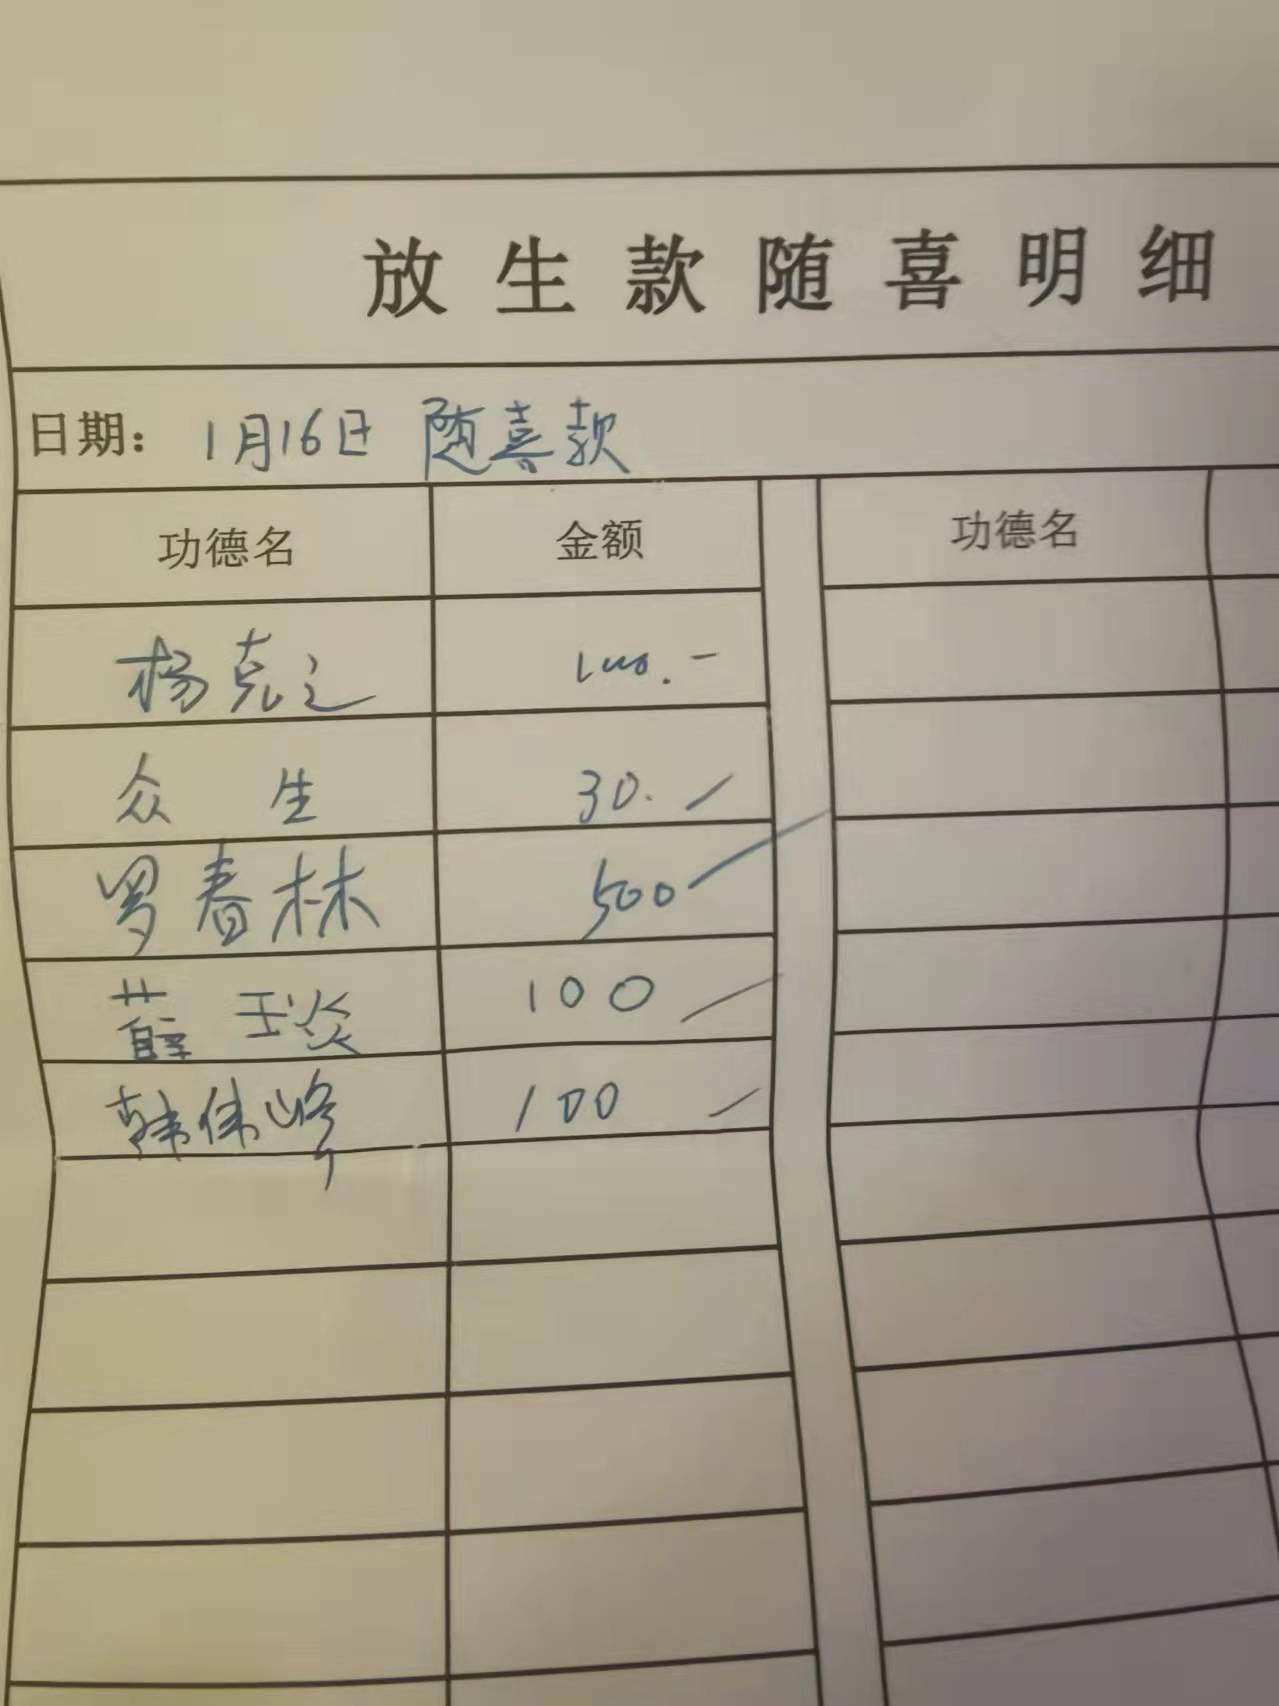 放生款随喜明细
日期：1月16日 随喜款
功德名 金额 功德名
杨克之 100.-
众生 30.
罗春林 500
薛玉炎 100
韩伟峰 100